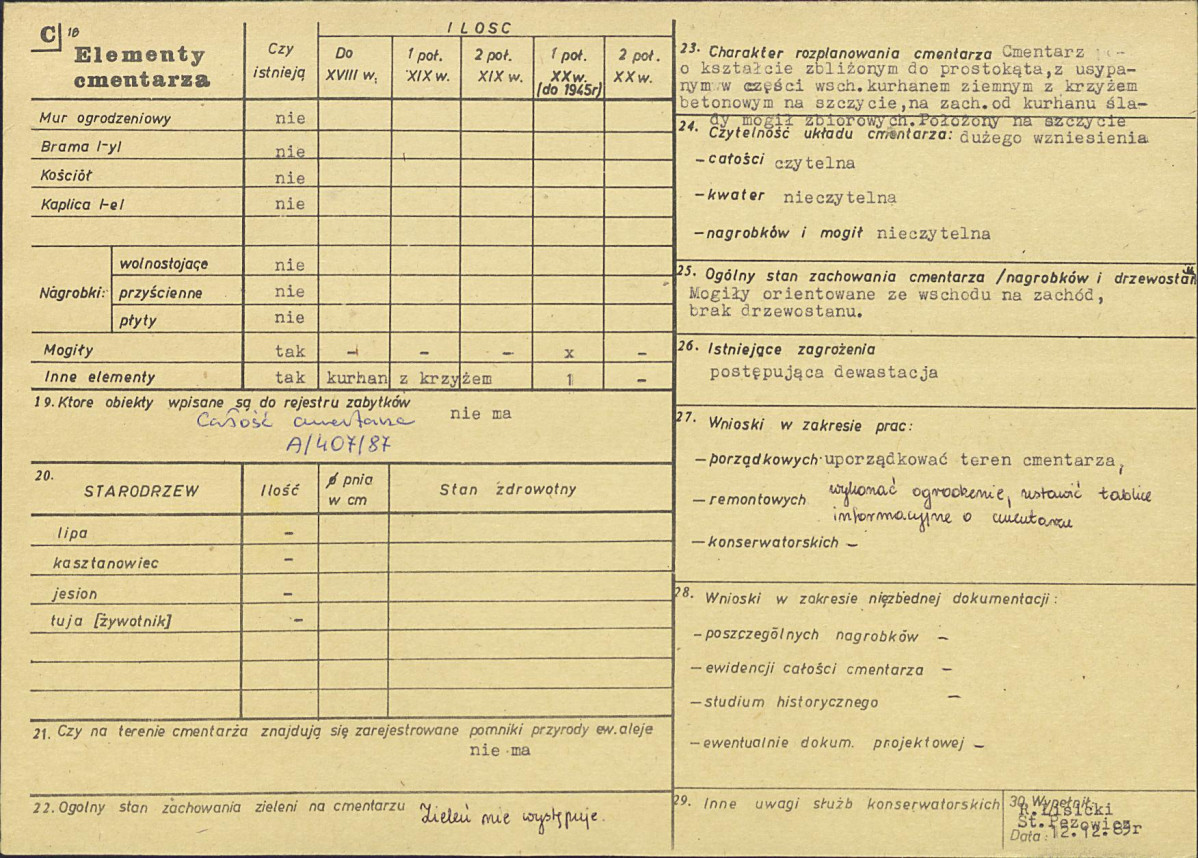 C 18
Elementy cmentarza
Czy istnieją
ILOŚC
Do XVIII w.
1 poł. XIX w.
2 poł. XIX w.
1 poł. XX w. (do 1945r)
2 poł. XX w.
Mur ogrodzeniowy nie
Brama I-yl nie
Kościół nie
Kaplica I-el nie
Nagrobki:
wolnostojące nie
przyścienne nie
płyty nie
Mogiły tak - - - x -
Inne elementy tak kurhan z krzyżem 1 -
19. Ktore obiekty wpisane są do rejestru zabytków nie ma
Całość cmentarza
A/407/87
20. STARODRZEW Ilość ø pnia w cm Stan zdrowotny
lipa -
kasztanowiec -
jesion -
tuja [żywotnik] -
21. Czy na terenie cmentarża znajdują się zarejestrowane pomniki przyrody ew. aleje
nie ma
22. Ogolny stan zachowania zieleni na cmentarzu Zieleń nie występuje.
23. Charakter rozplanowania cmentarza Cmentarz
o kształcie zbliżonym do prostokąta,z usypa-
nym w części wsch.kurhanem ziemnym z krzyżem
betonowym na szczycie,na zach.od kurhanu śla-
dy mogił zbiorowych.Położony na szczycie
24. Czytelność układu cmentarza: dużego wzniesienia
- całości czytelna
- kwater nieczytelna
- nagrobków i mogił nieczytelna
25. Ogólny stan zachowania cmentarza /nagrobków i drzewostan
Mogiły orientowane ze wschodu na zachód,
brak drzewostanu.
26. Istniejące zagrożenia
postępująca dewastacja
27. Wnioski w zakresie prac:
- porządkowych uporządkować teren cmentarza,
- remontowych wykonać ogrodzenie, ustawić tablice
informacyjne o cmentarzu
- konserwatorskich -
28. Wnioski w zakresie niezbednej dokumentacji:
- poszczególnych nagrobków -
- ewidencji całości cmentarza -
- studium historycznego -
- ewentualnie dokum. projektowej -
29. Inne uwagi służb konserwatorskich
30. Wypełnił
R.Lisicki
St.Pezowicz
Data: 12.12.89r